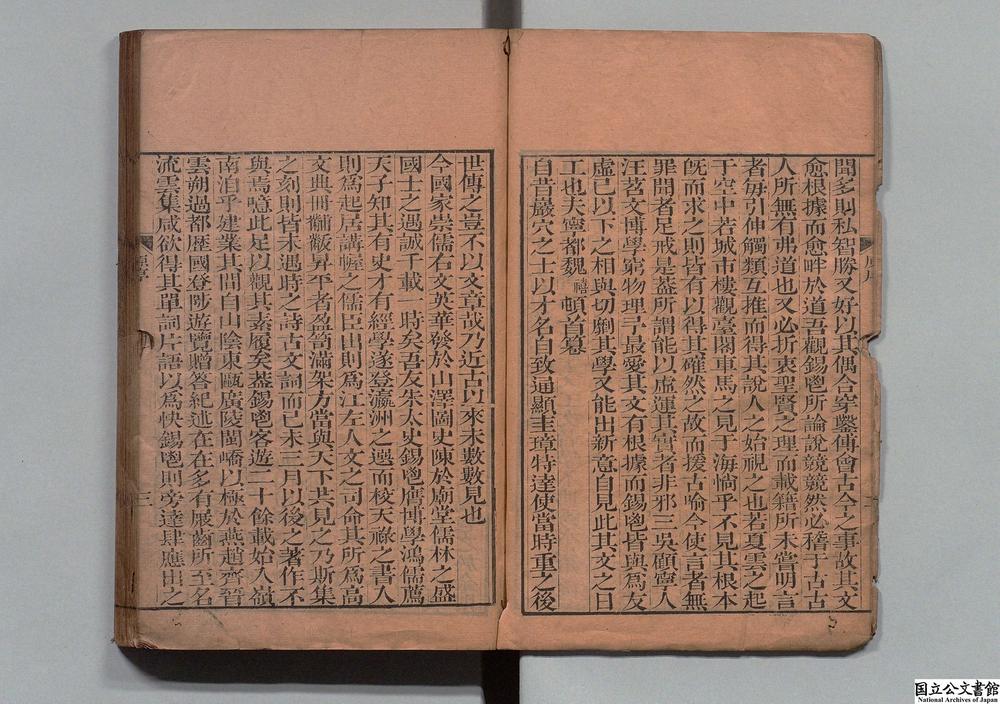 聞多則私智勝又好以其偶合穿鑿傅會古今之事故其文
愈根據而愈畔於道吾觀錫鬯所論說兢兢然必稽于古古
人所無有弗道也又必折衷聖賢之理而載籍所未嘗明言
者每引伸觸類互推而得其說人之始視之也若夏雲之起
于空中若城市樓觀臺閣車馬之見于海惝乎不見其根本
旣而求之則皆有以得其確然之故而援古喻今使言者無
罪聞者足戒是蓋所謂能以虛運其實者非邪三吳顧寧人
汪苕文博學窮物理予最愛其文有根據而錫鬯皆與爲友
虛已以下之相與切劘其學又能出新意自見此其文之日
工也夫寧都魏禧頓首纂
自昔巖穴之士以才名自致逼顯圭璋特達使當時重之後
世傳之豈不以文章哉乃近古以來未數數見也
今國家崇儒右文英華發於山澤圖史陳於廟堂儒林之盛
國士之遇誠千載一時矣吾友朱太史錫鬯膺博學鴻儒薦
天子知其有史才有經學遂登瀛洲之選而校天祿之書入
則爲起居講幄之儒臣出則爲江左人文之司命其所爲高
文典冊黼黻昇平者盈笥滿架方當與天下共見之乃斯集
之刻則皆未遇時之詩古文詞而已未三月以後之著作不
與焉噫此足以觀其素履矣蓋錫鬯客遊二十餘載始入嶺
南泊乎建業其間自山陰東甌廣陵閩嶠以極於燕趙齊晉
雲朔過都歷國登陟遊覽贈答紀述在在多有屐齒所至名
流雲集咸欲得其單詞片語以爲快錫鬯則旁達肆應出之
原序
三
国立公文書館
National Archives of Japan